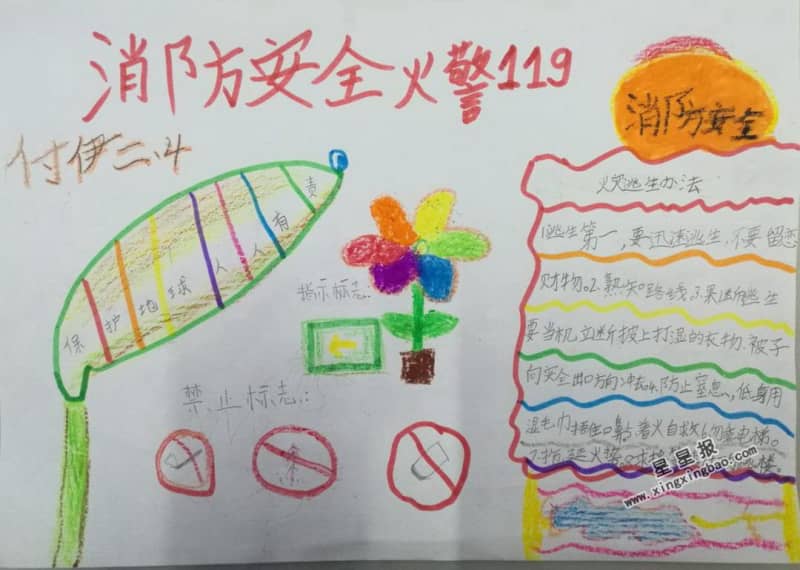 消防安全火警119
付伊二.4
消防安全
保护地球人人有责
火灾逃生办法
1逃生第一,要迅速逃生.不要留恋
财物。2.熟知路线.3.果断逃生
要当机立断披上打湿的衣物.被子
向安全出口方向冲去4.防止窒息,低身用
湿毛巾捂住口鼻5着火自救6勿乘电梯。
指示标志:
禁止标志:
禁
星星报
www.xingxingbao.com